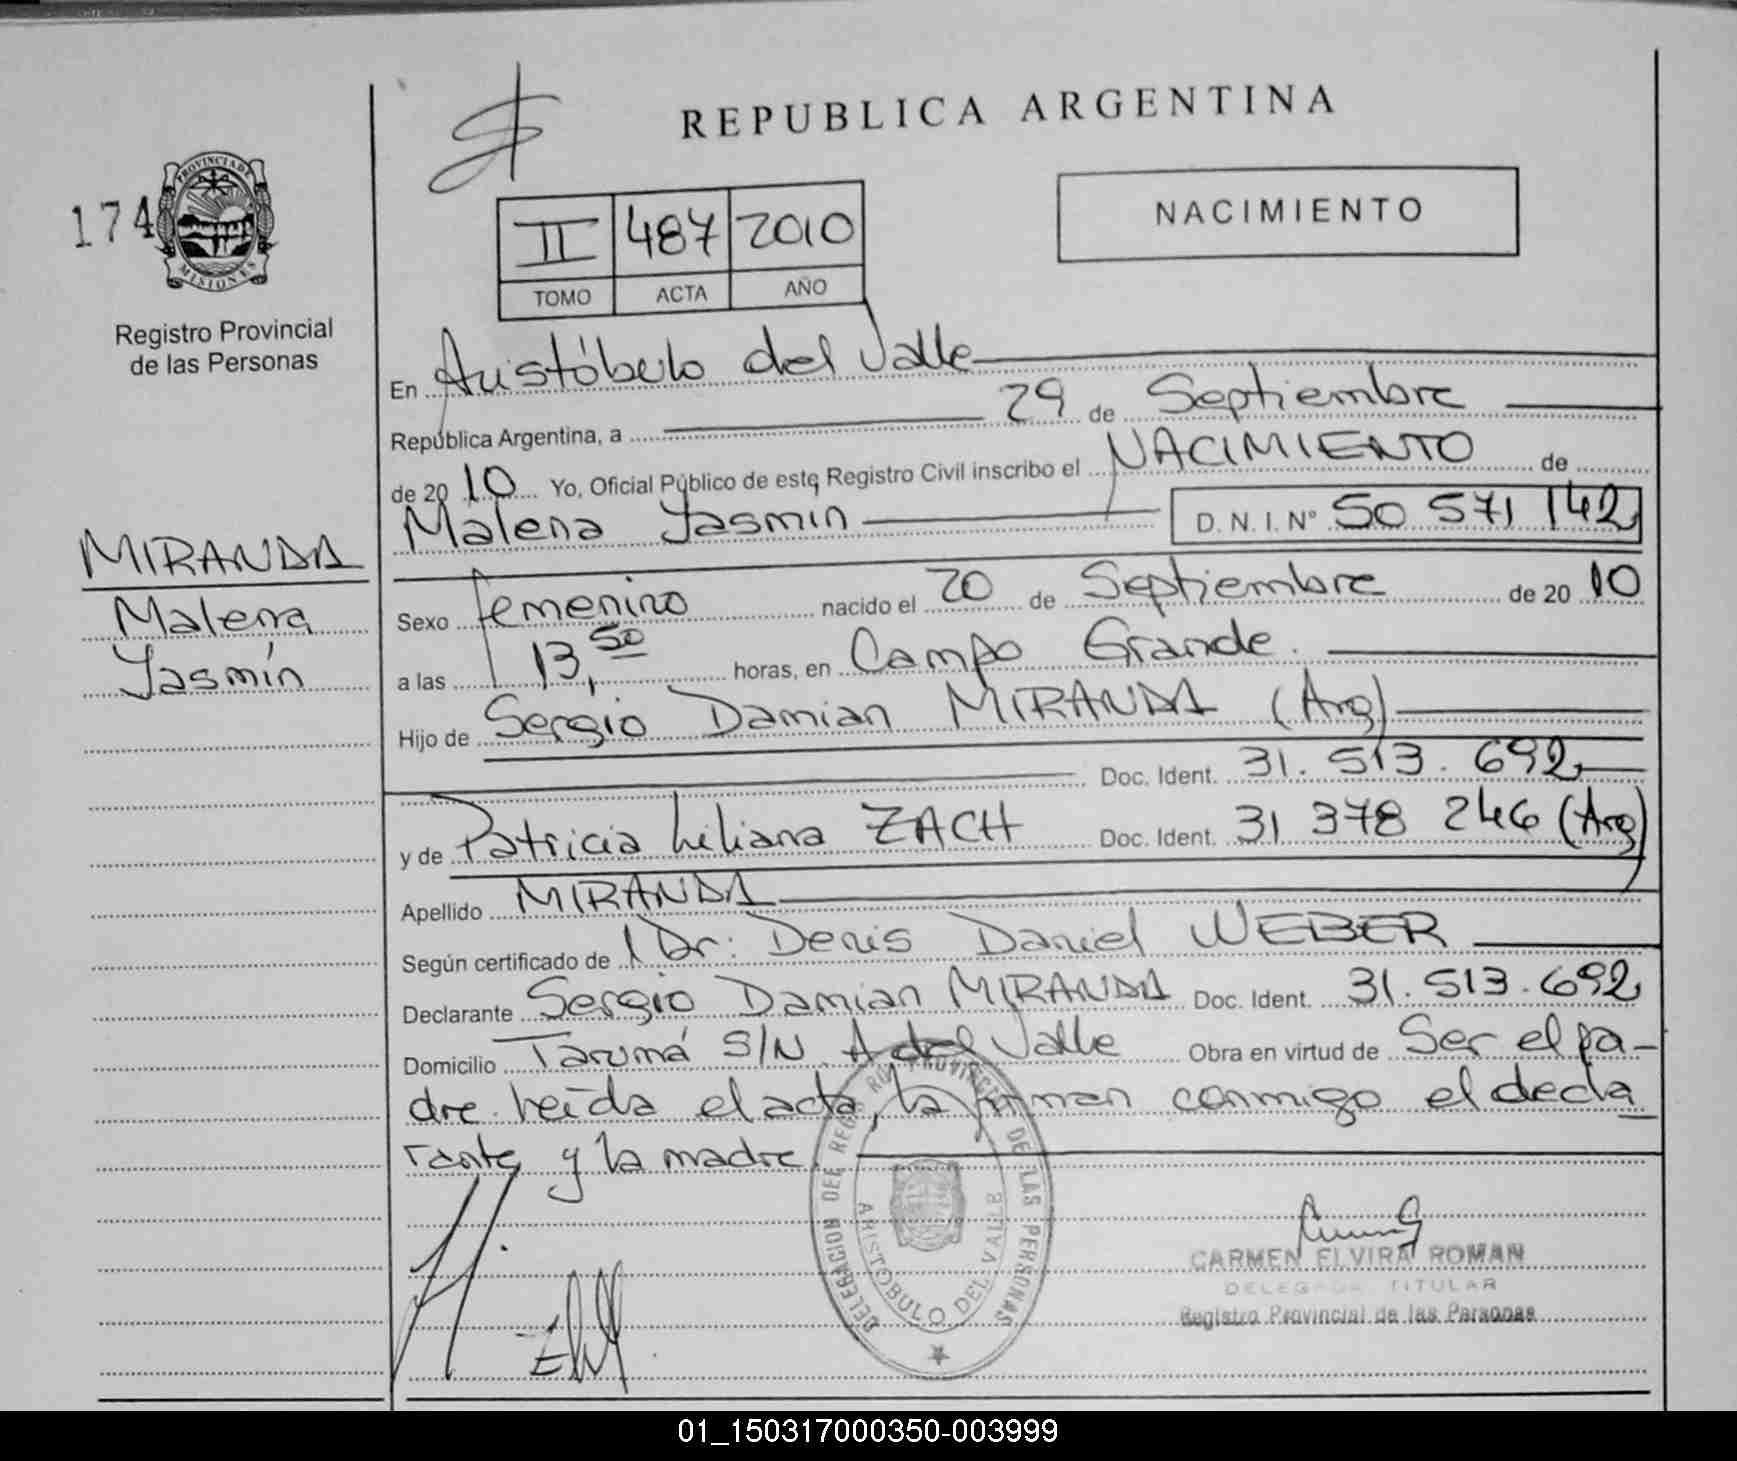 REPUBLICA ARGENTINA
174
PROVINCIA DE
MISIONES
Registro Provincial
de las Personas
II 487 2010
TOMO ACTA AÑO
NACIMIENTO
En Aristóbulo del Valle
República Argentina, a 29 de Septiembre
de 2010 Yo, Oficial Público de este Registro Civil inscribo el NACIMIENTO de
Malena Yasmin D. N. I. N° 50 571 142
MIRANDA
Malena
Yasmín
Sexo femenino nacido el 20 de Septiembre de 2010
a las 13,50 horas, en Campo Grande.
Hijo de Sergio Damian MIRANDA (Arg)
Doc. Ident. 31.513.692
y de Patricia Liliana ZACH Doc. Ident. 31 378 246 (Arg)
Apellido MIRANDA
Según certificado de Dr: Denis Daniel WEBER
Declarante Sergio Damian MIRANDA Doc. Ident. 31.513.692
Domicilio Tarumá S/N A del Valle Obra en virtud de Ser el pa-
dre. leída el acta, la firman conmigo el decla
rante y la madre.
DELEGACION DEL REGISTRO PROVINCIAL DE LAS PERSONAS
ARISTOBULO DEL VALLE
CARMEN ELVIRA ROMAN
DELEGADA TITULAR
Registro Provincial de las Personas
01_150317000350-003999